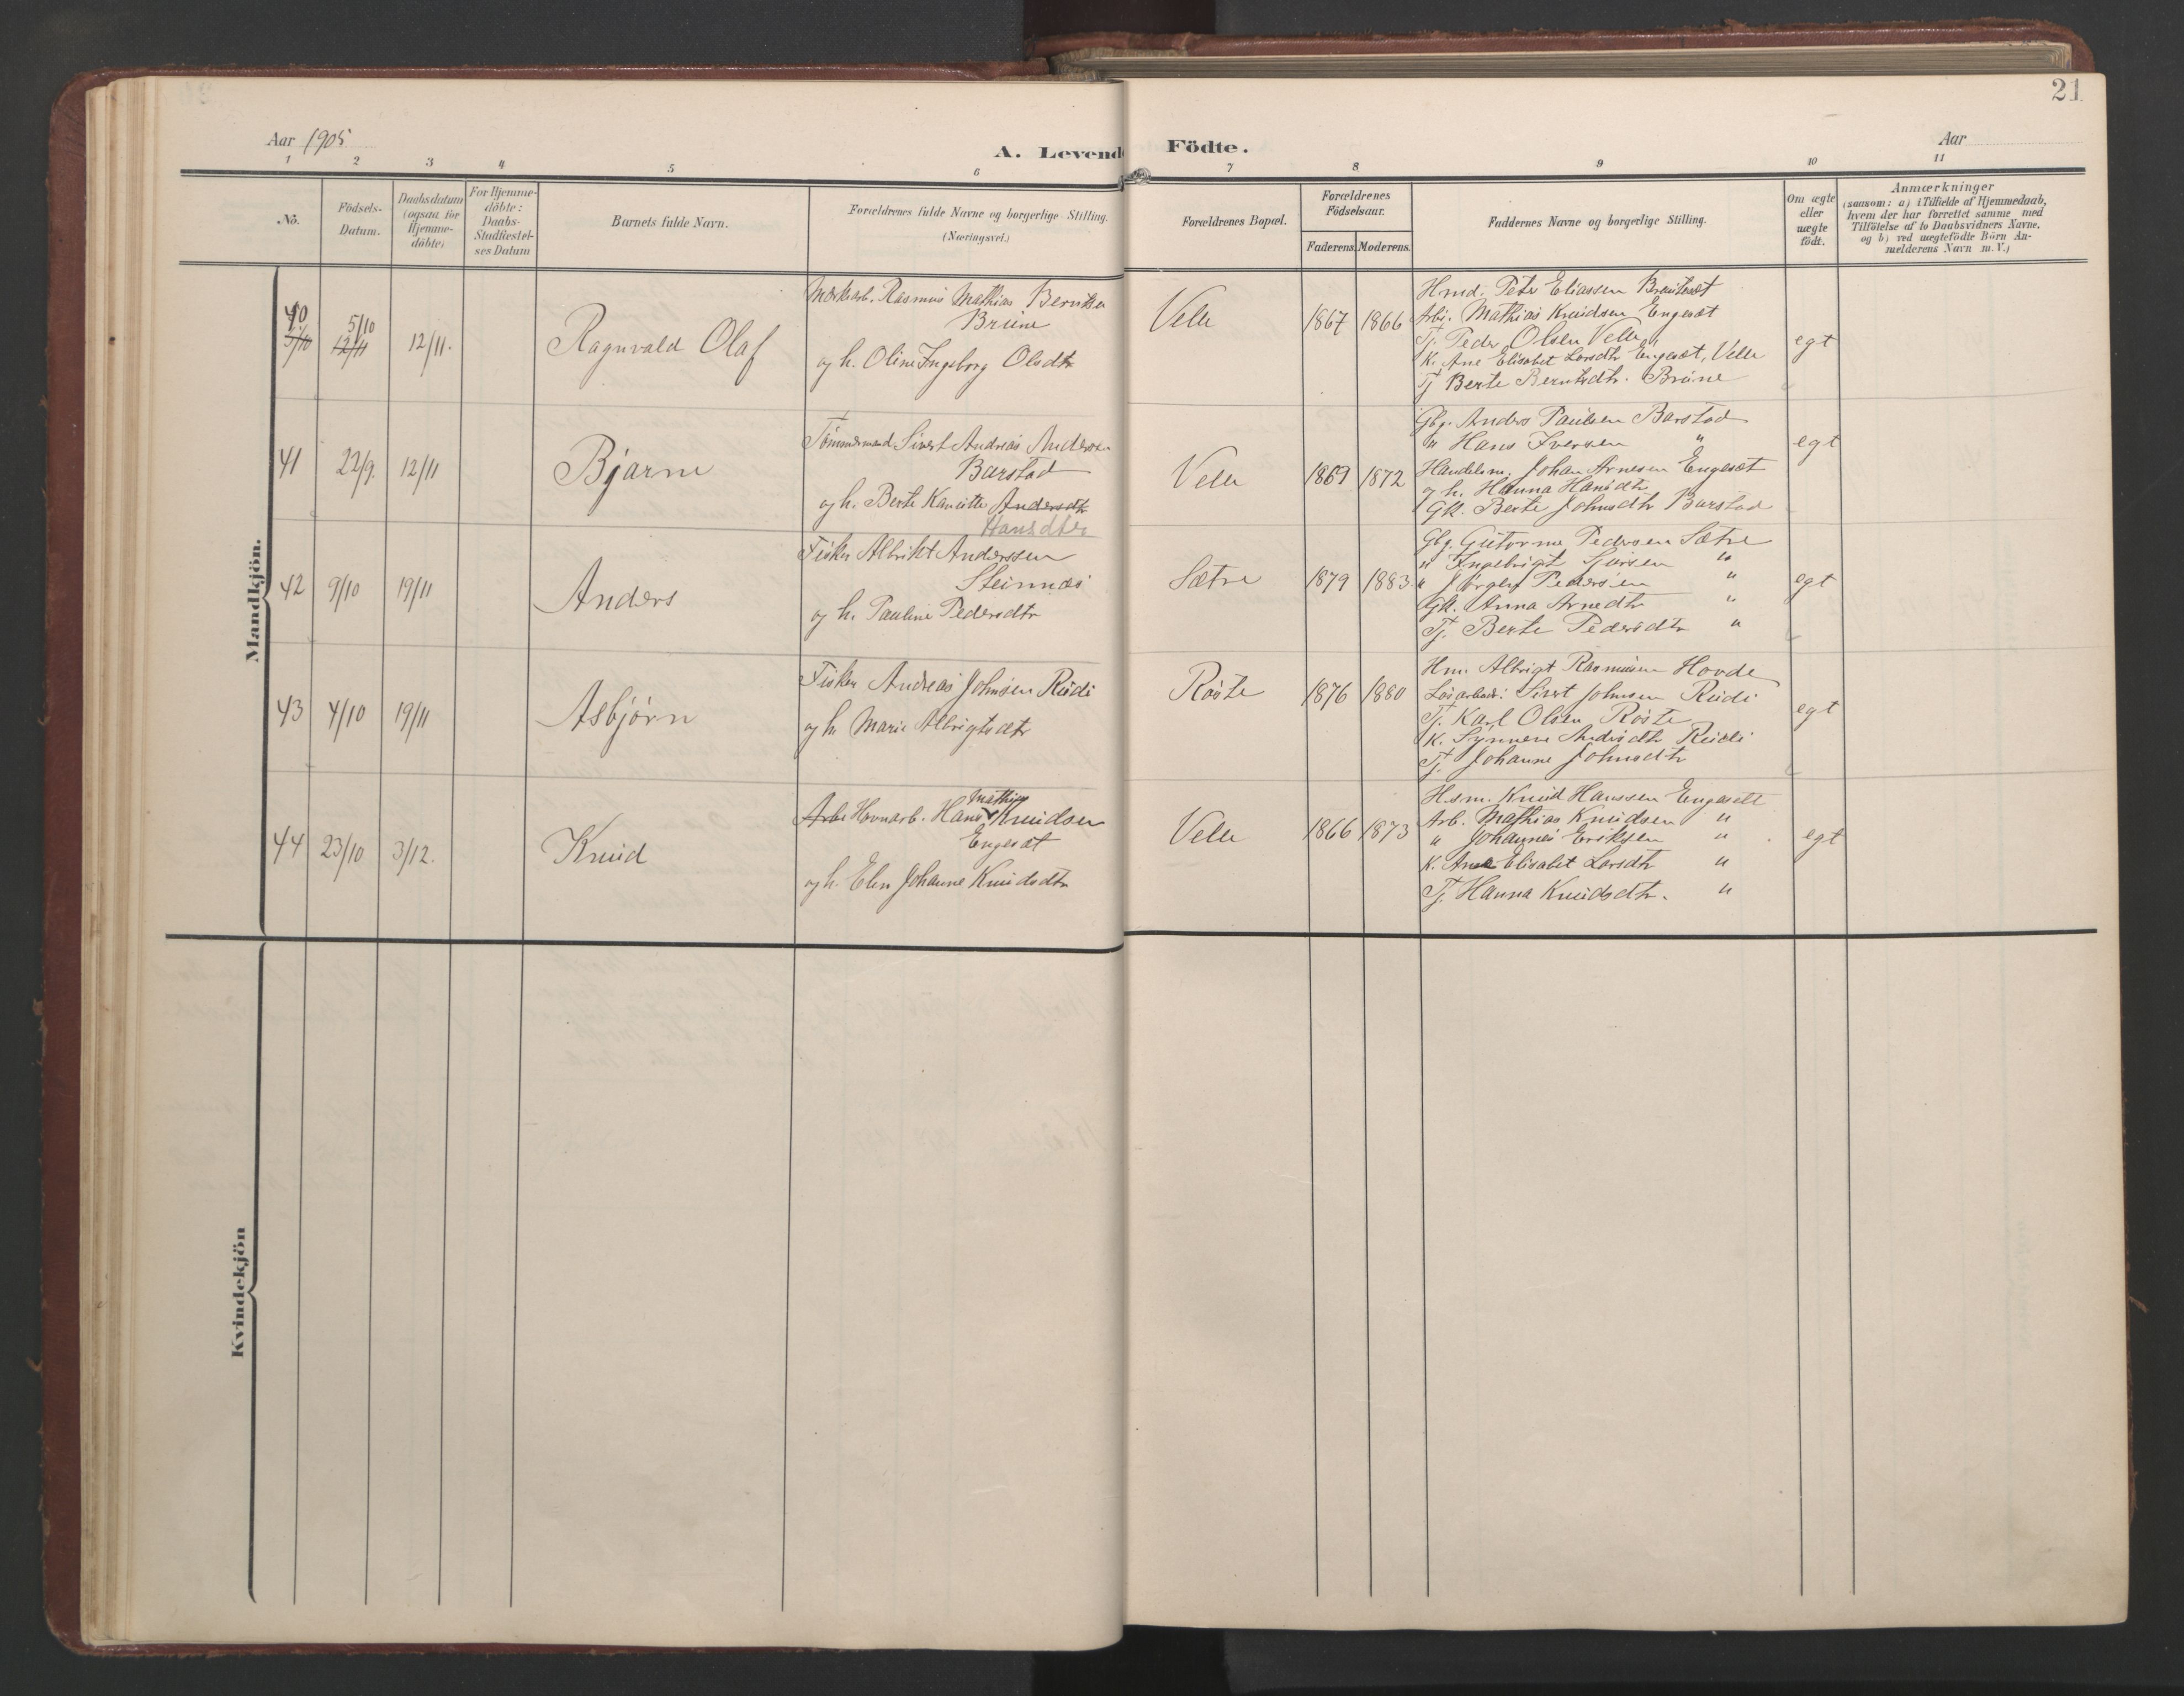 21
Aar 1905
A. Levende Födte.
Aar
1 2 3 4 5 6 7 8 9 10 11
No.
Födsels-
Datum.
Daabsdatum
(ogsaa for
Hjemme-
döbte)
For Hjemme-
döbte:
Daabs-
Stadfæstel-
ses Datum
Barnets fulde Navn.
Forældrenes fulde Navne og borgerlige Stilling.
(Næringsvei.)
Forældrenes Bopæl.
Forældrenes
Födselsaar.
Faderens. Moderens.
Faddernes Navne og borgerlige Stilling.
Om ægte
eller
uægte
födt.
Anmærkninger
(saasom: a) i Tilfælde af Hjemmedaab,
hvem der har forrettet samme med
Tilföielse af to Daabsvidners Navne.
og b) ved uægtefödte Börn An-
melderens Navn m. V.)
Mandkjön.
40
5/10
5/10
12/11
12/11.
Ragnvald Olaf
Rasmus Mathias Berntsen
Brüne
og h. Oline Ingeborg Olsdtr
Velle
1867 1866
Hmd. Peter Eliassen
Arb. Mathias Knudsen Engesæt
Tj. Peder Olsen Velle
K. Ane Elisabet Larsdtr Engesæt, Velle
Tj Berte Berntsdtr. Brüne
egt
41 22/9. 12/11
Bjarne
Tömmermand Sivert Andreas Anderse-
Barstad
og h. Berte Andersdtr
Hansdter
Velle
1869 1872
Gbg. Anders Paulsen Barstad
" Hans Iversen "
Handelsm. Johan Arnesen Engesæt
og h. Hanna Hansdtr
Gk. Berte Johnsdtr Barstad
egt
42 9/10 19/11
Anders
Fisker Albrikt Anderssen
Steinnæs
og h. Pauline Pedersdtr
Sætre
1879 1883
Gbg. Guttorm Pedersen Sætre
" Ingebrigt Sjursen "
" Jørgen Pedersen "
Gk. Anna Arnedtr "
Tj. Berte Pedersdtr "
egt
43 4/10 19/11
Asbjörn
Fisker Andreas Johnsen Rüdi
og h. Marie Albrigtsdtr
Röste
1876 1880
Hm. Albrigt Rasmussen Hovde
Løsarbeid: Sivert Johnsen Rüdi
Tj. Karl Olsen Röste
K. Synneve Andrsdtr Rüdi
Tj. Johanne Johnsdtr
egt
44 23/10 3/12.
Knud
Arbe Havnarb. Hans Mathias Knudsen
Engesæt
og h. Elen Johanne Knudsdtr
Velle
1866 1873
Hsm. Knud Hanssen Engesett
Arb. Mathias Knudsen "
" Johannes Eriksen "
K. Ane Elisabet Larsdtr "
Tj. Hanna Knudsdtr. "
egt
Kvindekjön